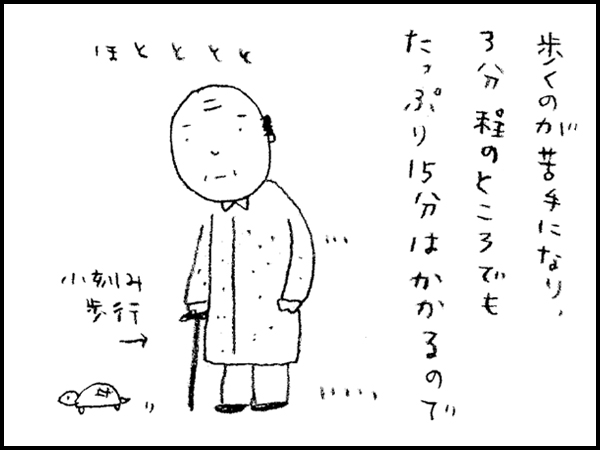 歩くのが苦手になり、
3分程のところでも
たっぷり15分はかかるので
ほととととと
小刻み
歩行
→